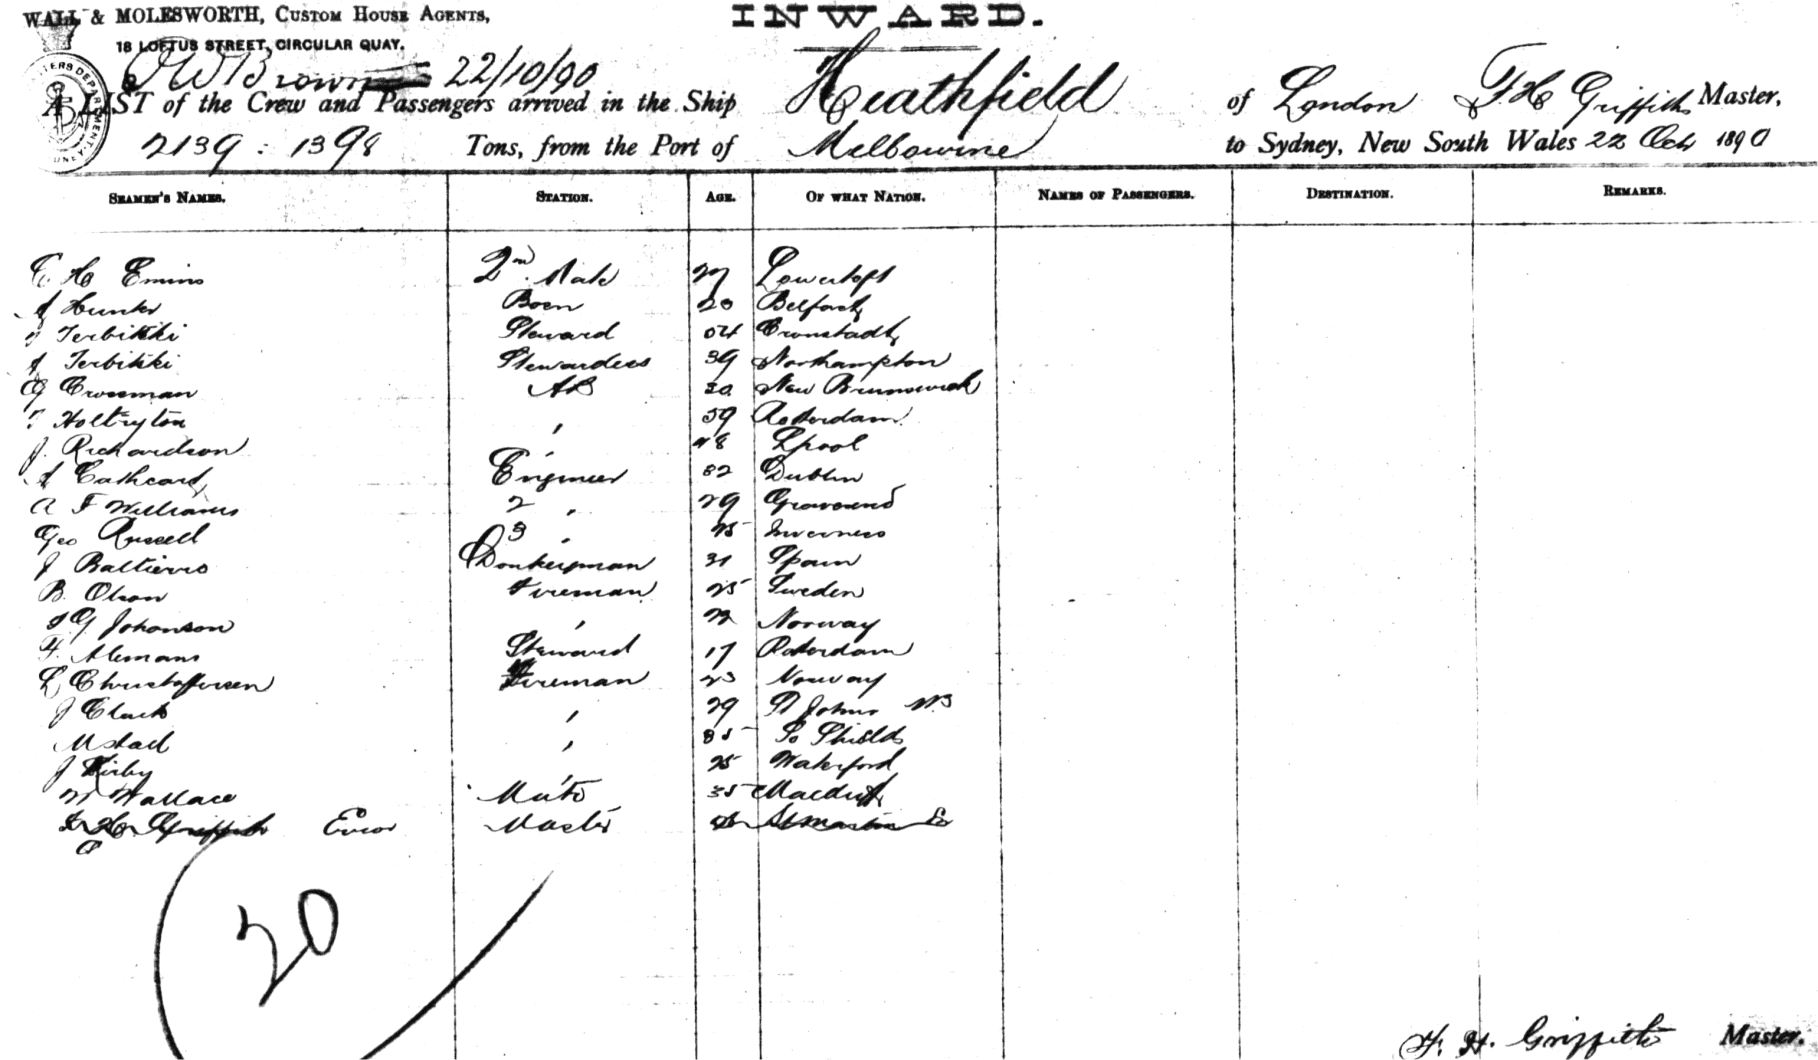 WALL & MOLESWORTH, CUSTOM HOUSE AGENTS,
18 LOFTUS STREET, CIRCULAR QUAY.
INWARD.
Brown 22/10/90
A LIST of the Crew and Passengers arrived in the Ship Heathfield of London F H Griffith Master,
2139 : 1398 Tons, from the Port of Melbourne to Sydney, New South Wales 22 Oct 1890
SEAMEN'S NAMES. STATION. AGE. OF WHAT NATION. NAMES OF PASSENGERS. DESTINATION. REMARKS.
H Emins 2nd Mate 27 Lowestoft
Hunter Bosn Belfast
Terbitski Steward 54 Cronstadt
Terbitski Stewardess 39 Northampton
G Crossman AB New Brunswick
59 Rotterdam
J. Richardson " 48 Lpool
Cathcart Engineer 32 Dublin
A F Williams 2 " 29 Gravesend
Geo Russell 3 " 25 Inverness
J Baltierro Donkeyman 31 Spain
B. Olson Fireman 25 Sweden
G Johanson " Norway
F. Alemans Steward 17 Rotterdam
L Christoffersen Fireman 23 Norway
J Clark " 29 St Johns NB
" 35 So Shields
J Kirby " 25 Waterford
W Wallace Mate 35 Macduff
F H Griffith Error Master
20
F. H. Griffith Master.